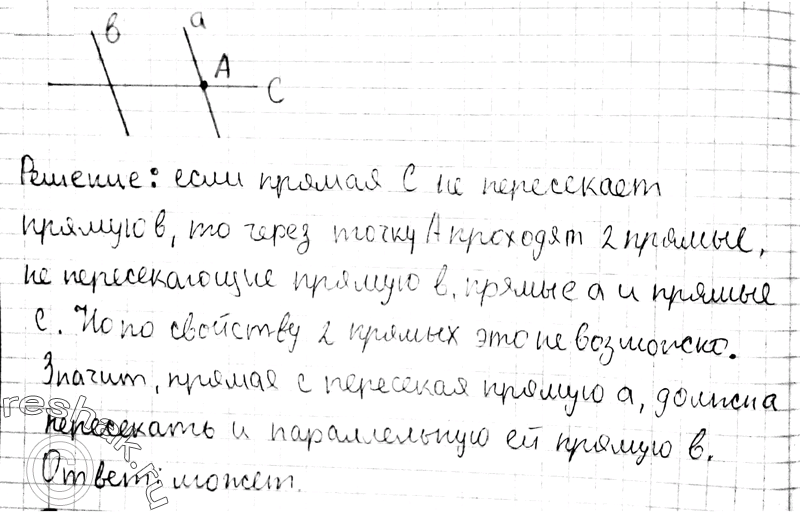 в a
A
C
Решение: если прямая С не пересекает
прямую в, то через точку А проходят 2 прямые,
не пересекающие прямую в, прямые а и прямые
с. Но по свойству 2 прямых это не возможно.
Значит, прямая с пересекая прямую а, должна
пересекать и параллельную ей прямую в.
Ответ: может.
reshak.ru